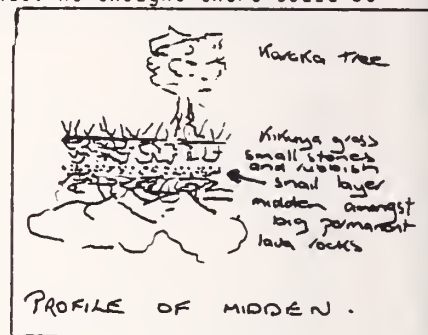 Karaka tree
Kikunya grass
small stones
and rubbish
snail layer
midden amongst
big permanent
lava rocks
PROFILE OF MIDDEN.